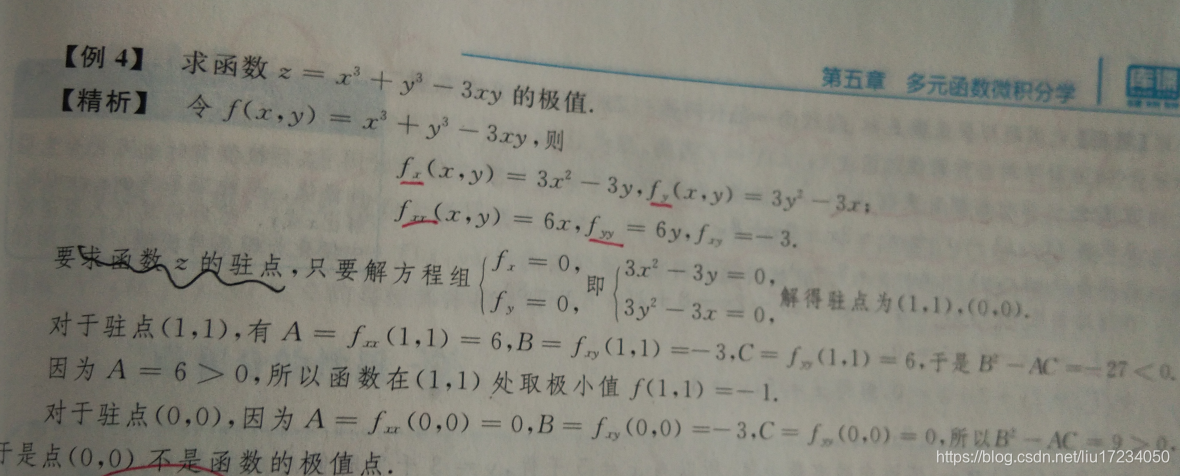 第五章 多元函数微积分学
【例 4】 求函数 z = x³ + y³ − 3xy 的极值.
【精析】 令 f(x,y) = x³ + y³ − 3xy,则
fₓ(x,y) = 3x² − 3y,f_y(x,y) = 3y² − 3x;
fₓₓ(x,y) = 6x,f_yy = 6y,f_xy = −3.
要求函数 z 的驻点,只要解方程组 { fₓ = 0, f_y = 0, 即 { 3x² − 3y = 0, 3y² − 3x = 0, 解得驻点为(1,1),(0,0).
对于驻点(1,1),有 A = fₓₓ(1,1) = 6,B = f_xy(1,1) = −3,C = f_yy(1,1) = 6,于是 B² − AC = −27 < 0.
因为 A = 6 > 0,所以函数在(1,1)处取极小值 f(1,1) = −1.
对于驻点(0,0),因为 A = fₓₓ(0,0) = 0,B = f_xy(0,0) = −3,C = f_yy(0,0) = 0,所以B² − AC = 9 > 0,
于是点(0,0)不是函数的极值点.
https://blog.csdn.net/liu17234050